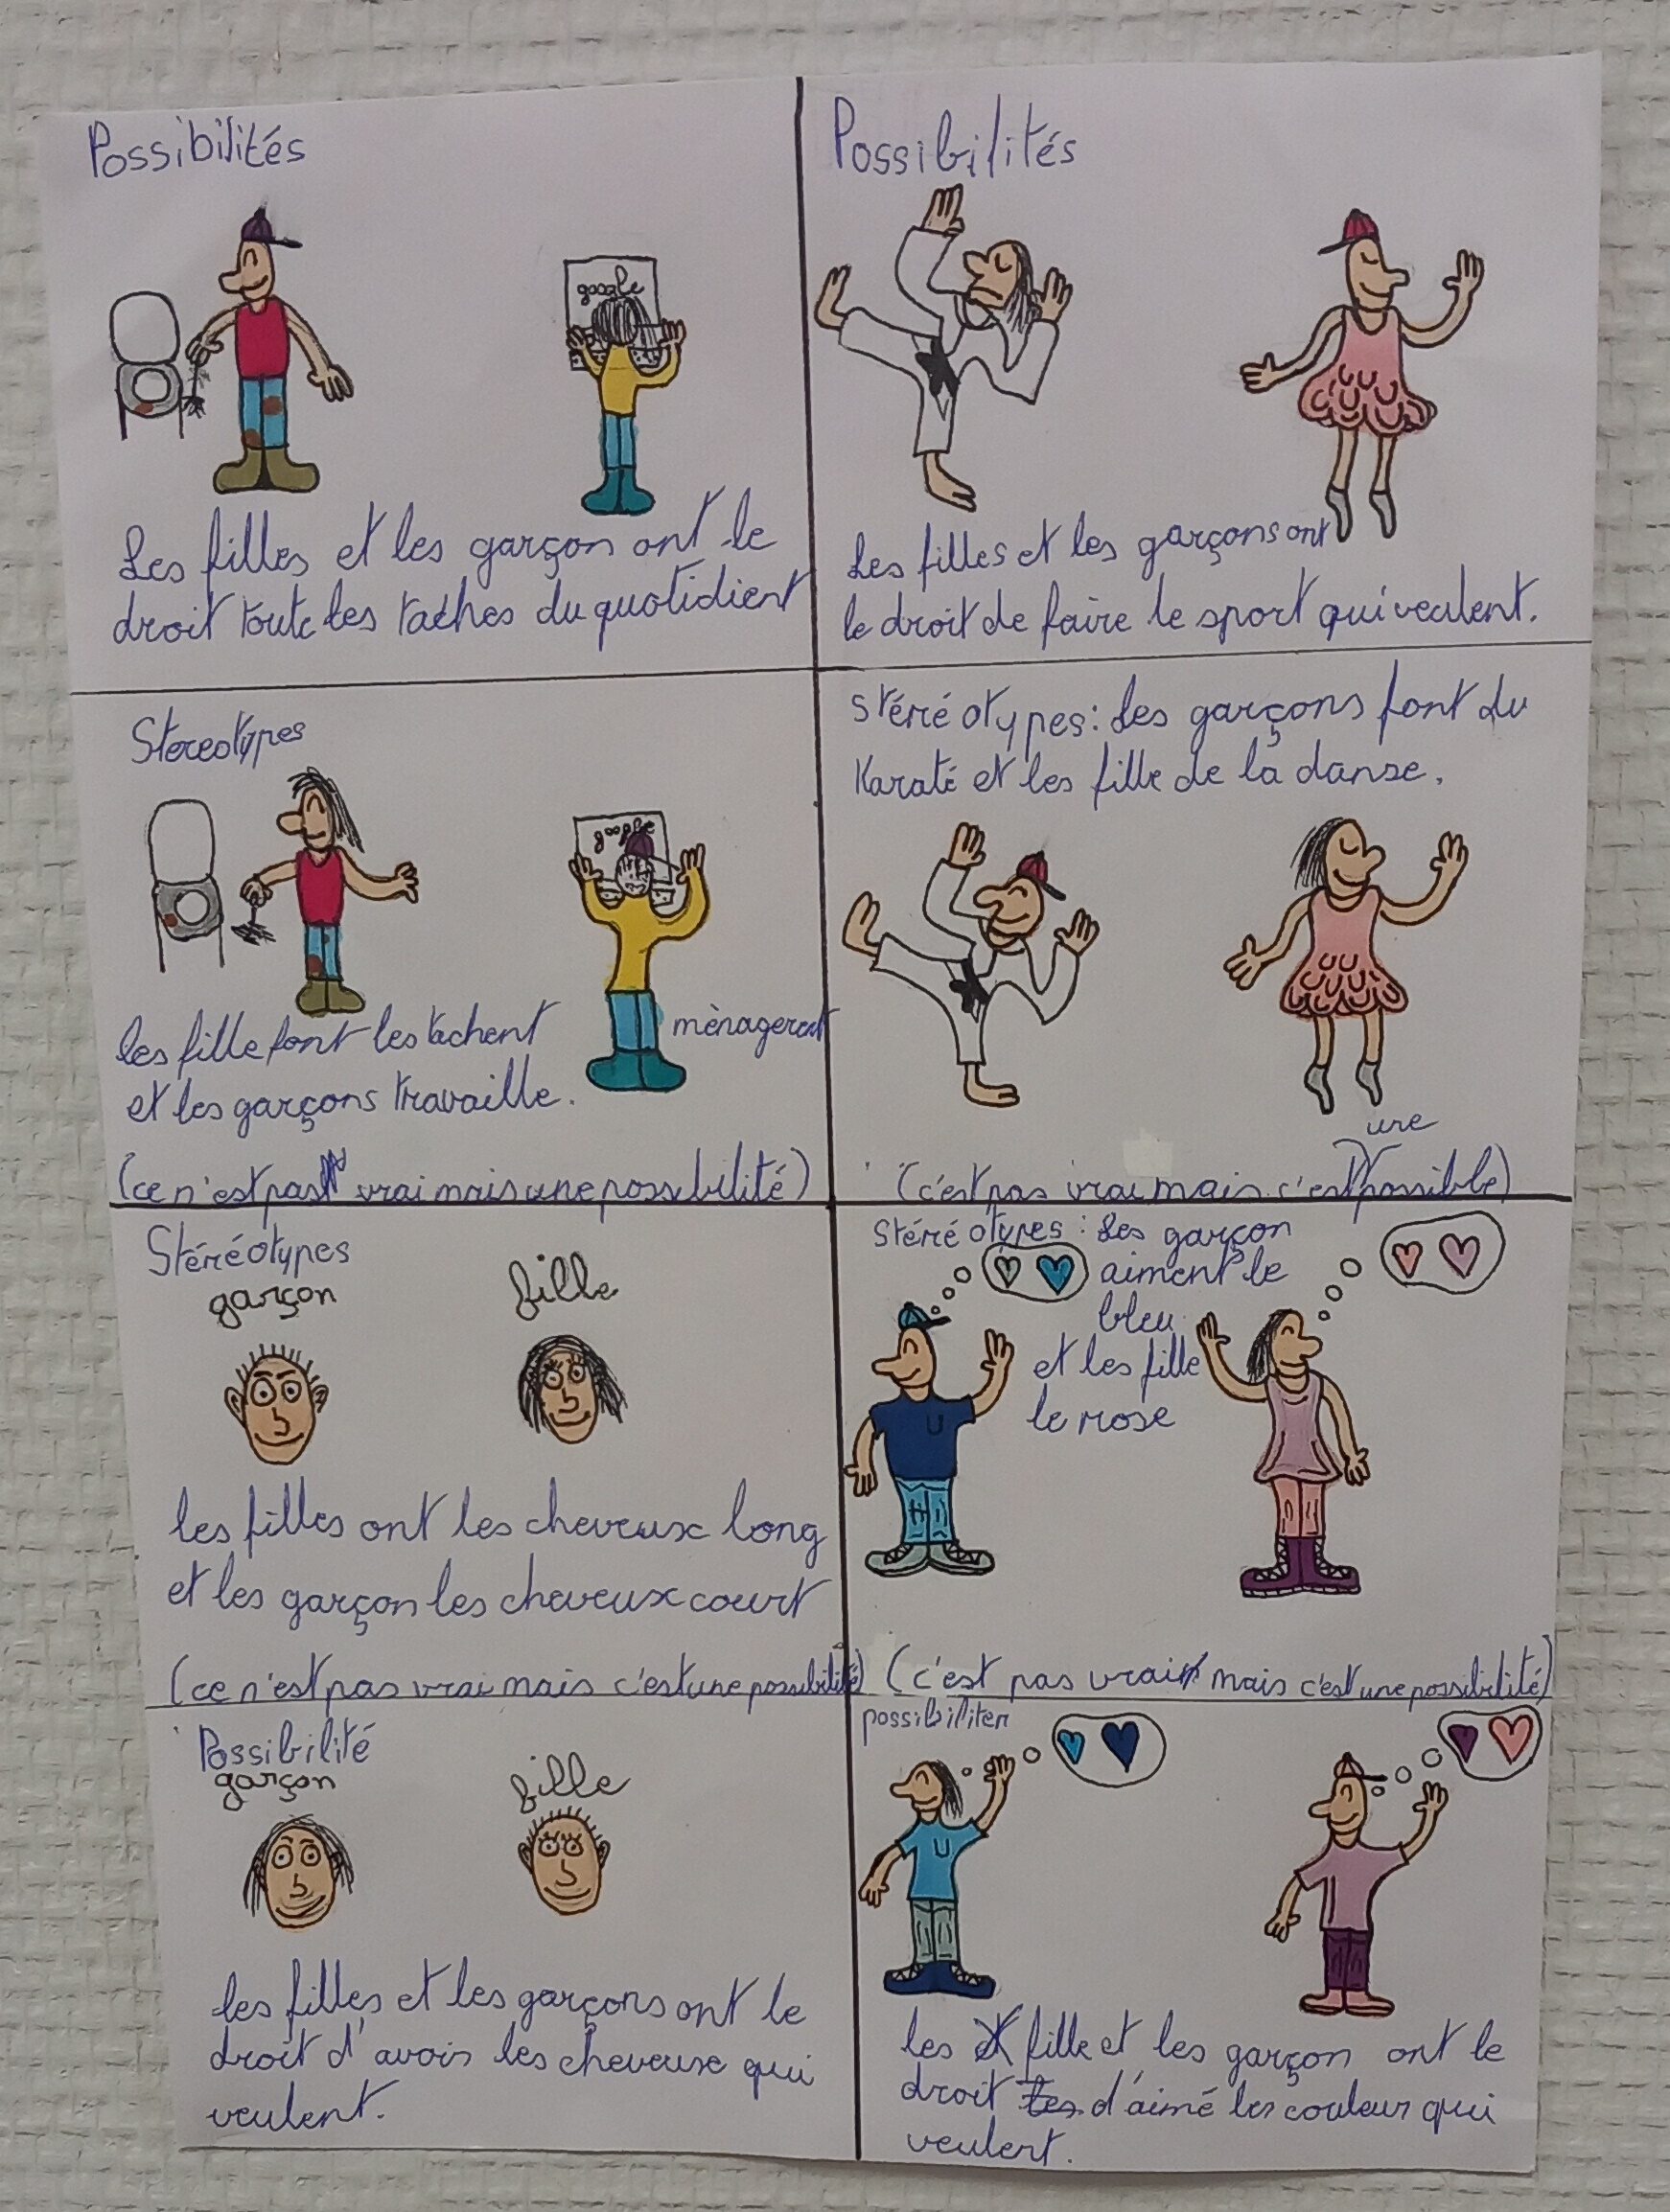 Possibilités
google
Les filles et les garçon ont le
droit toute les taches du quotidient
Possibilités
Les filles et les garçons ont
le droit de faire le sport qui veulent.
Stereotypes
google
les fille font les tachent
mènagerent
et les garçons travaille.
(ce n'est pas vrai mais une possibilité)
Stéréotypes : Les garçons font du
Karaté et les fille de la danse.
une
(c'est pas vrai mais c'est possible)
Stéréotypes
garçon
fille
les filles ont les cheveux long
et les garçon les cheveux court
(ce n'est pas vrai mais c'est une possibilité)
Stéréotypes : Les garçon
aiment le
bleu
et les fille
le rose
U
(c'est pas vrai mais c'est une possibilité)
Possibilité
garçon
fille
les filles et les garçons ont le
droit d'avoir les cheveuse qui
veulent.
possibiliter
U
les fille et les garçon ont le
droit les d'aimé les couleur qui
veulent.